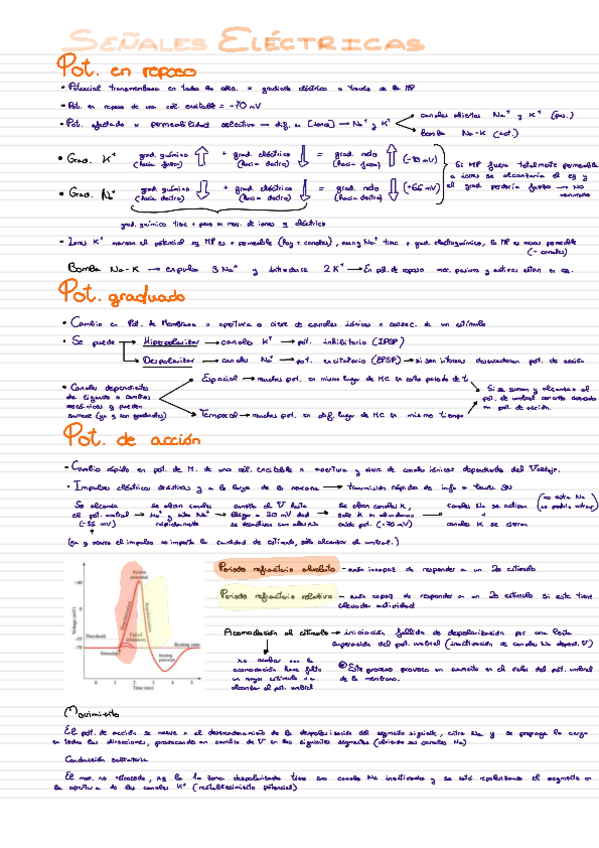 SEÑALES ELÉCTRICAS
Pot. en reposo
• Potencial transmembrana en todas las céls. x gradiente eléctrico a través de la MP
• Pot. en reposo de una cél. excitable = -70 mV
• Pot. afectado x permeabilidad selectiva → dif. en [iones] → Na⁺ y K⁺
canales abiertos Na⁺ y K⁺ (pas.)
bomba Na-K (act.)
• Grad. K⁺ grad. químico (hacia fuera) + grad. eléctrico (hacia dentro) = grad. neto (hacia fuera) (-90 mV)
• Grad. Na⁺ grad. químico (hacia dentro) + grad. eléctrico (hacia dentro) = grad. neto (hacia dentro) (+66 mV)
Si MP fuera totalmente permeable
a iones se alcanzaría el eq y
el grad. perdería fuerza → No
grad. químico tiene + peso en mov. de iones q eléctrico
• Iones K⁺ marcan el potencial xq MP es + permeable (hay + canales), aunq Na⁺ tiene + grad. electroquímico, la MP es menos permeable
(- canales)
Bomba Na-K → expulsa 3 Na⁺ y introduce 2 K⁺ → En pot. de reposo mov. pasivos y activos están en eq.
Pot. graduado
• Cambio en Pot. de Membrana x apertura o cierre de canales iónicos x consec. de un estímulo
• Se puede → Hiperpolarizar → canales K⁺ → pot. inhibitorio (IPSP)
→ Despolarizar → canales Na⁺ → pot. excitatorio (EPSP) → si son intensos desencadenan pot. de acción
• Canales dependientes
de ligando o cambios
mecánicos y pueden
sumarse (xq son graduados)
Espacial → muchos pot. en mismo lugar de MC en corto periodo de t
Temporal → muchos pot. en dif. lugar de MC en mismo tiempo
Si se suman y alcanzan el
pot. de umbral
un pot. de acción.
Pot. de acción
• Cambio rápido en pot. de M. de una cél. excitable x apertura y cierre de canales iónicos dependientes del Voltaje.
• Impulsos eléctricos drásticos y a lo largo de la neurona → transmisión rápida de info a través SN
Se alcanza
el pot. umbral
(-55 mV)
se abren canales
Na⁺ y entra Na⁺
rápidamente
cuando el V hasta
llegar a 30 mV
se inactivan canales Na
Se abren canales K,
sale K en abundancia
(-70 mV)
canales Na se activan
+
canales K se cierran
(no entra Na)
(xq y ocurre el impulso no importa la cantidad de estímulo, sólo alcanzar el umbral.)
Action
potential
Depolarization
Repolarization
Voltage (mV)
+40
0
-55
-70
Threshold
Failed
initiations
Stimulus
Resting state
Resting
potential
0 1 2 3 4 5
Time (ms)
Periodo refractario absoluto - cuando incapaz de responder a un 2o estímulo
Periodo refractario relativo - cuando capaz de responder a un 2o estímulo si este tiene
elevada actividad
Acomodación al estímulo → iniciación fallida de despolarización por una lenta
superación del pot. umbral (inactivación de canales Na depend. V)
No acaba con la
acomodación hace falta
un mayor estímulo x a
alcanzar el pot. umbral
Este proceso provoca un aumento en el valor del pot. umbral
de la membrana.
Movimiento
El pot. de acción se mueve x el desencadenamiento de la despolarización del segmento siguiente, entra Na y se propaga la carga
en todas las direcciones, produciendo un cambio de V en los siguientes segmentos (abriendo sus canales Na)
Conducción saltatoria
El mov. no retrocede, xq la zona despolarizada tiene sus canales Na inactivados y se está repolarizando el segmento con
la apertura de los canales K⁺ (restablecimiento potencial)